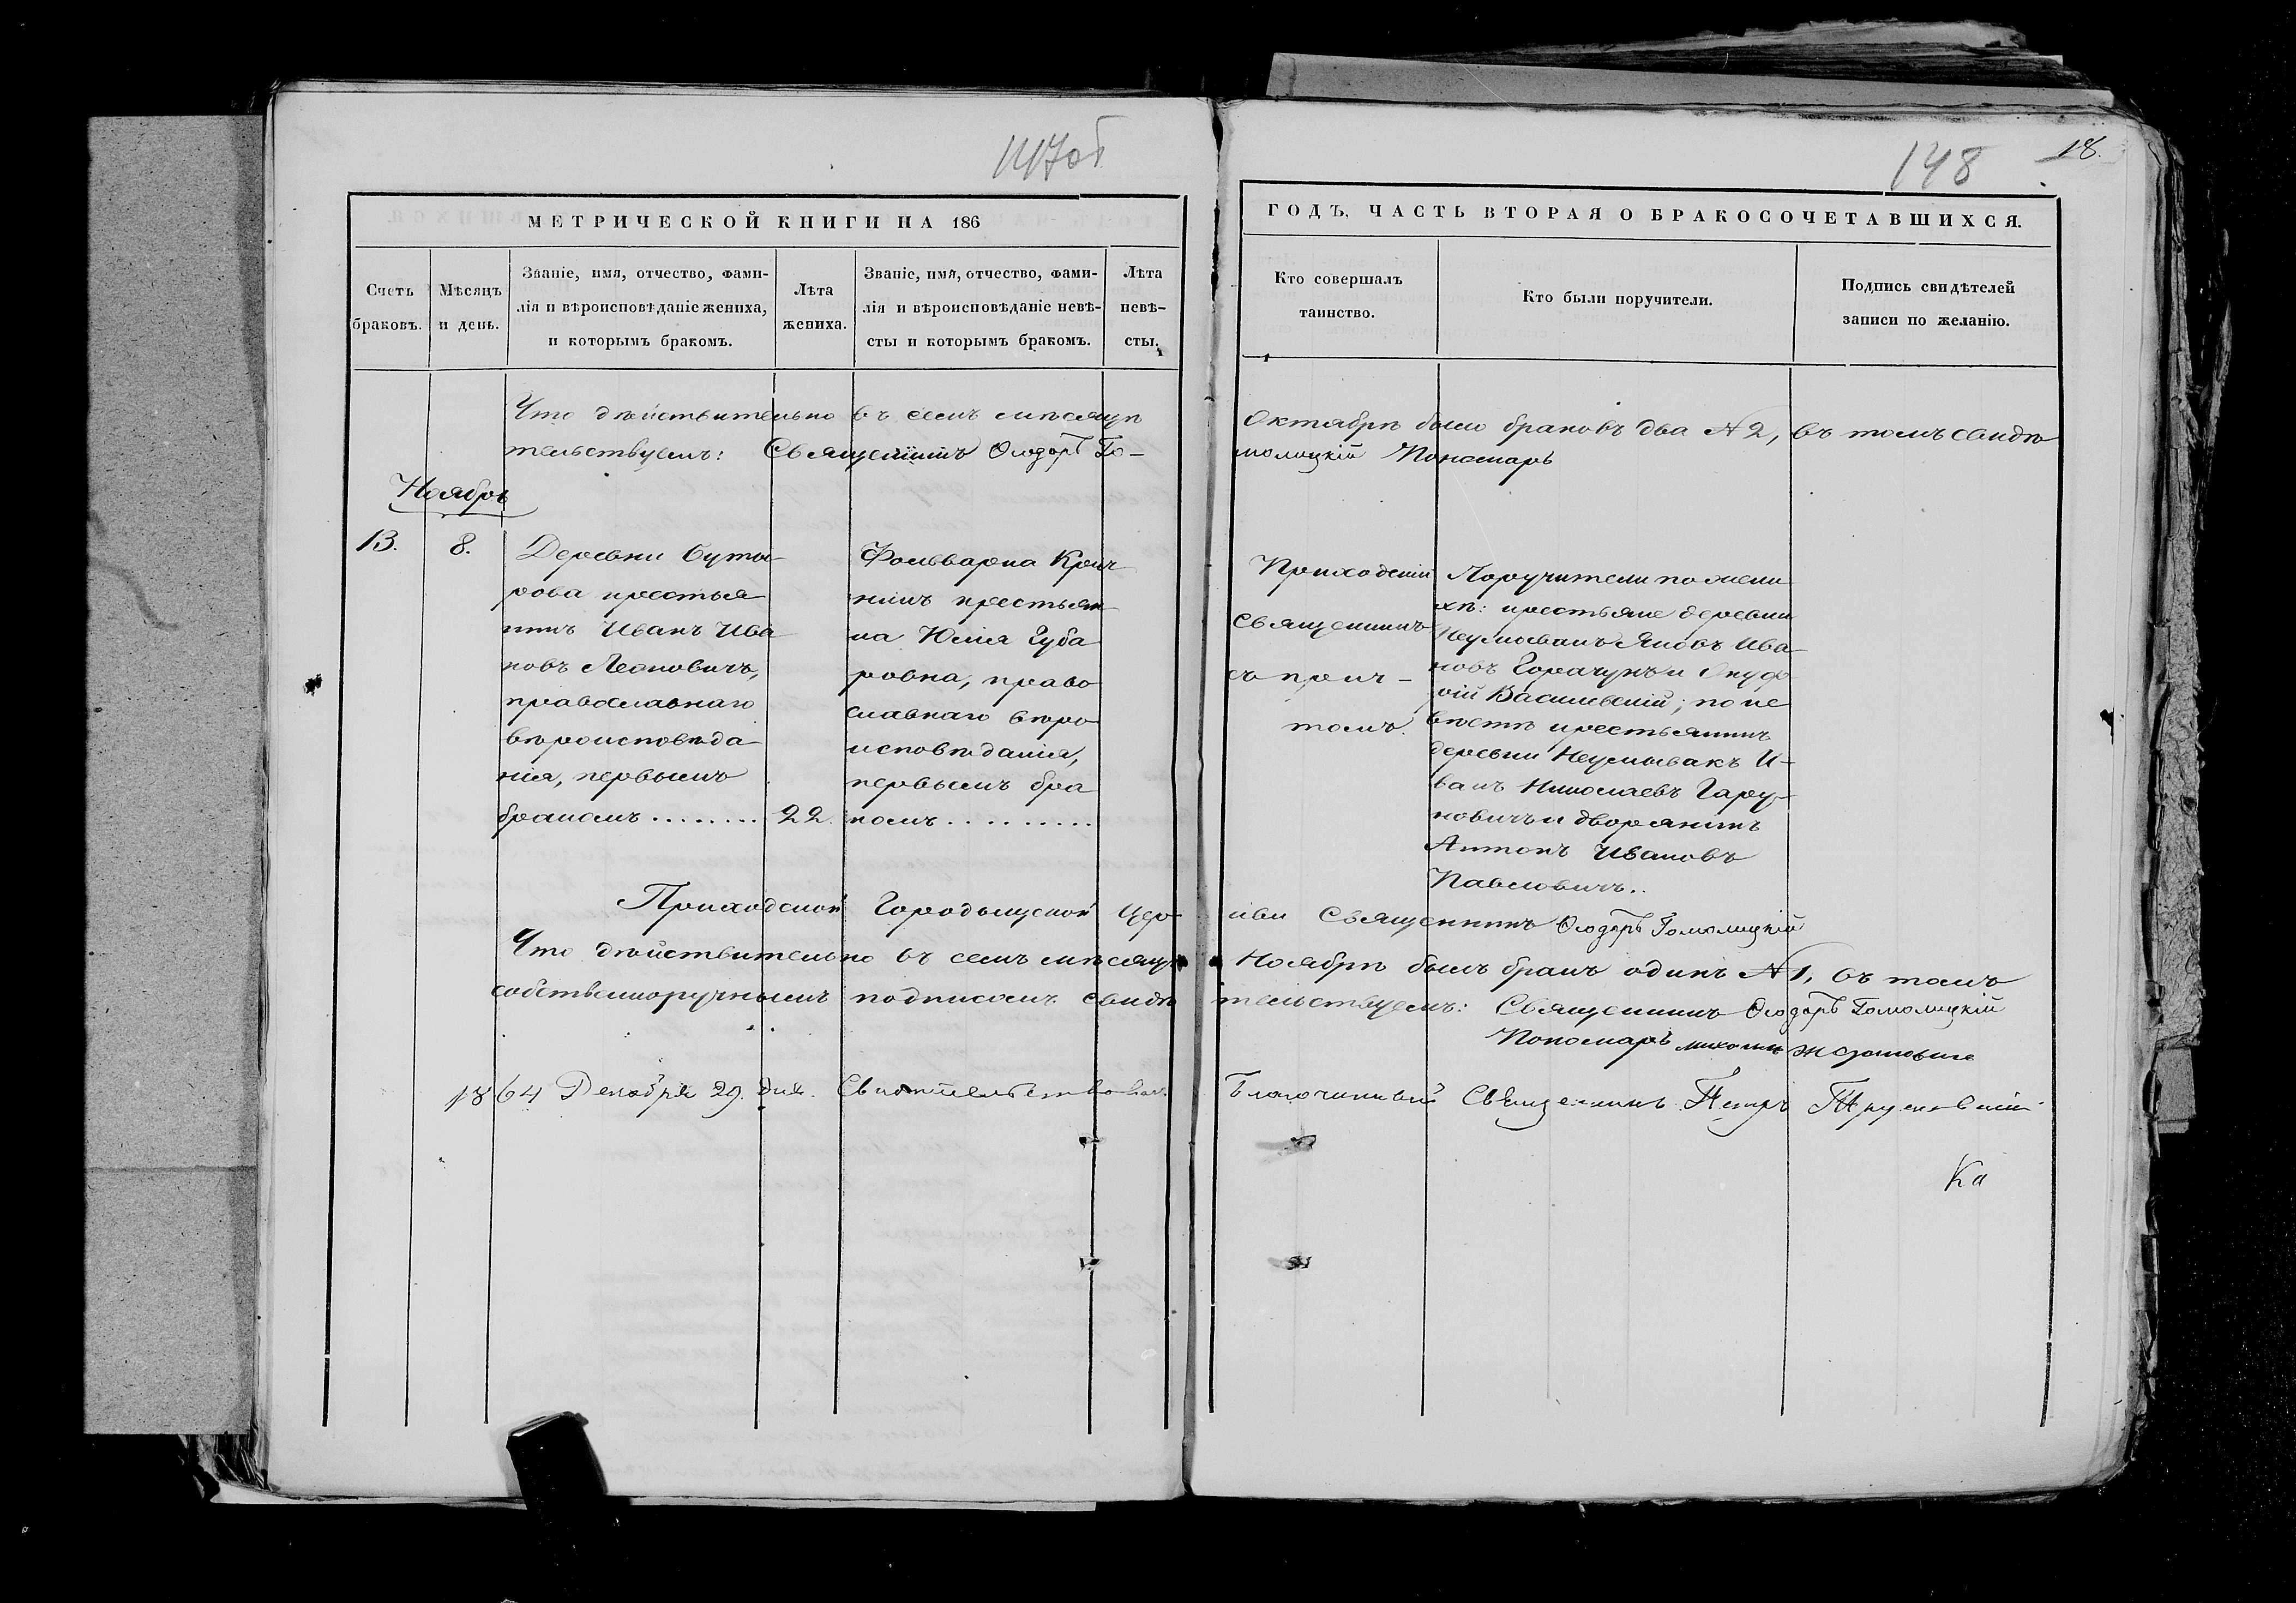 147об
148
18.
МЕТРИЧЕСКОЙ КНИГИ НА 186
ГОДЪ, ЧАСТЬ ВТОРАЯ О БРАКОСОЧЕТАВШИХСЯ.
Счетъ
браковъ.
Мѣсяцъ
и день.
Званіе, имя, отчество, фами-
лія и вѣроисповѣданіе жениха,
и которымъ бракомъ.
Лѣта
жениха.
Званіе, имя, отчество, фами-
лія и вѣроисповѣданіе невѣ-
сты и которымъ бракомъ.
Лѣта
невѣ-
сты.
Кто совершалъ
таинство.
Кто были поручители.
Подпись свидѣтелей
записи по желанію.
Что дѣйствительно въ семъ мѣсяцѣ
Октябрѣ были браковъ два №2, въ томъ свидѣ
тельствуемъ: Священникъ Ѳеодоръ Го-
молицкій Пономарь
Ноябрь
13.
8.
Деревни Буты-
рова крестья
нинъ Иванъ Ива
новъ Леоновичъ,
православнаго
вѣроисповѣда
нія, первымъ
бракомъ ........
22.
Фольварка Крич
нинъ крестьян
ка Юлія Губа
ровна, право
славнаго вѣро
исповѣданія,
первымъ бра
комъ ..........
Приходскій
священникъ
съ прич-
томъ.
Поручители по жени
хѣ: крестьяне деревни
Неумывакъ Яковъ Ива
новъ Горачунъ и Онуф
рій Василевскій; по не
вѣстѣ крестьянинъ
деревни Неумывакъ И-
ванъ Николаевъ Гару-
новичъ и дворянинъ
Антонъ Ивановъ
Павловичъ..
Приходской Городыщской Цер-
кви Священникъ Ѳеодоръ Гомолицкій
Что дѣйствительно въ семъ мѣсяцѣ
Ноябрѣ былъ бракъ одинъ №1, въ томъ
собственноручнымъ подписомъ свидѣ
тельствуемъ: Священникъ Ѳеодоръ Гомолицкій
Пономарь Михаилъ
1864 Декабря 29. дня. Свидѣтельствовалъ
Благочинный Священникъ Петръ
Ка